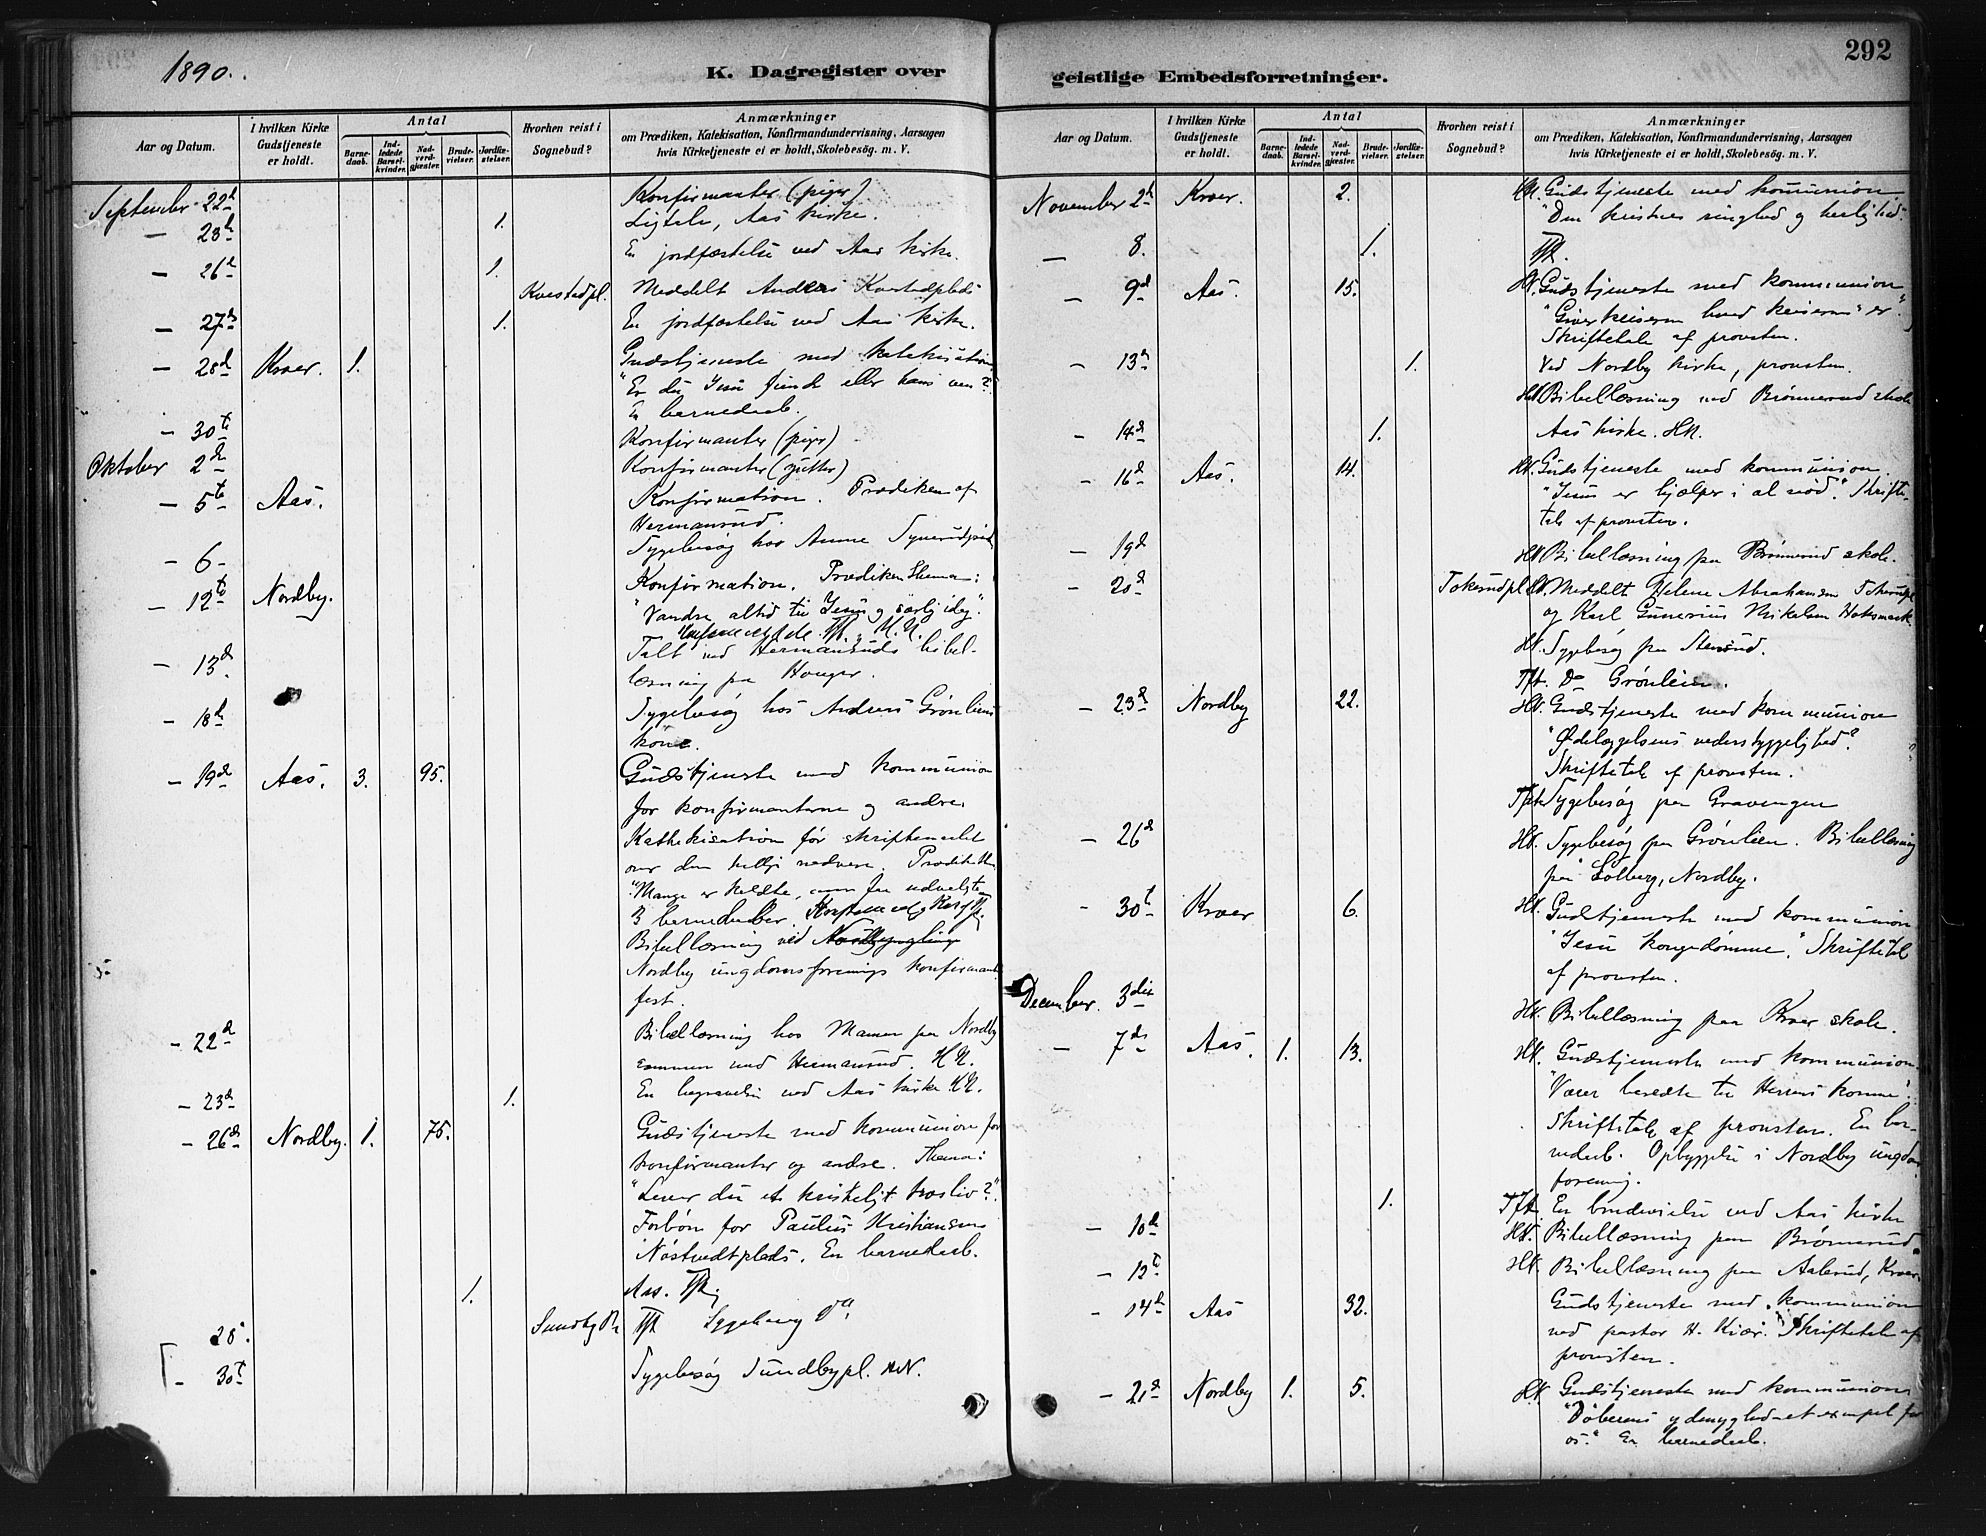 1890.
K. Dagregister over
Aar og Datum.
I hvilken Kirke Gudstjeneste er holdt.
Antal
Barnedaab.
Indledede Barselkvinder.
Nadverdgjæster.
Brudevielser.
Jordfæstelser.
Hvorhen reist i Sognebud?
Anmærkninger
om Prædiken, Katekisation, Konfirmandundervisning, Aarsagen
hvis Kirketjeneste ei er holdt, Skolebesøg. m. V.
September 22d Konfirmanter (piger)
— 23d 1. Ligtale, Aas kirke.
— 26d 1. En jordfæstelse ved Aas kirke.
Kvestadpl. Meddelt Andreas Kvestadplads
— 27d 1. En jordfæstelse ved Aas kirke.
— 28d Kroer. 1. Gudstjeneste med katekisation
"Er du Jesu fiende eller hans ven?"
En barnedaab.
— 30te Konfirmanter (piger)
Oktober 2den Konfirmanter (gutter)
— 5te Aas. Konfirmation. Prædiken af
Hermansrud.
— 6 Sygebesøg hos Anne
— 12te Nordby. Konfirmation. Prædiken Thema:
"Vandre altid til Jesu
— 13d Talt ved Hermansruds bibel-
læsning paa Haugen.
— 18d Sygebesøg hos Anders Grønliens
kone.
— 19de Aas. 3. 95. Gudstjeneste med kommunion
for konfirmanterne og andre.
Kathekisation før skriftemaalet
over den hellige nadvere.
"Mange er kaldte, men faa udvalgte"
3 barnedaaber.
Bibellæsning ved
Nordby ungdomsforenings konfirmant
fest.
— 22d Bibellæsning hos Mamen paa Nordby
sammen med Hermansrud. H.N.
— 23d 1. En begravelse ved Aas kirke H.N.
— 26de Nordby. 1. 75. Gudstjeneste med kommunion for
konfirmanter og andre. Thema:
"Lever du et kristeligt trosliv?"
Forbøn for Paulus Kristiansen
Nøstvedtplads. En barnedaab.
1. Aas.
28. Sundby Pl. Sygebesøg
— 30te Sygebesøg Sundbypl. H.N.
292
geistlige Embedsforretninger.
Aar og Datum.
I hvilken Kirke Gudstjeneste er holdt.
Antal
Barnedaab.
Indledede Barselkvinder.
Nadverdgjæster.
Brudevielser.
Jordfæstelser.
Hvorhen reist i Sognebud?
Anmærkninger
om Prædiken, Katekisation, Konfirmandundervisning, Aarsagen
hvis Kirketjeneste ei er holdt, Skolebesøg. m. V.
November 2d Kroer. 2. HN. Gudstjeneste med kommunion
"Den kristnes ringhed og herlighed"
— 8. 1.
— 9d Aas. 15. HN. Gudstjeneste med kommunion
"Giver keiseren hvad keiserens er"
Skriftetale af provsten.
— 13d 1. Ved Nordby kirke, provsten.
HN Bibellæsning ved Brønnerud skole
— 14d 1. Aas kirke. HN.
— 16d Aas. 14. HN. Gudstjeneste med kommunion.
"Jesus er hjælper i al nød". Skrifte-
tale af provsten.
— 19d HN Bibellæsning paa Brønnerud skole.
— 20d Tokerudpl HN. Meddelt Helene Abrahamsen
og Karl Gunerius Nikolsen
HN. Sygebesøg paa Stensrud.
Do Grønlien.
— 23d Nordby 22. HN. Gudstjeneste med kommunion
"Ødelæggelsens vederstyggelighed".
Skriftetale af provsten.
Sygebesøg paa
— 26d HN. Sygebesøg paa Grønlien. Bibellæsning
paa Solberg, Nordby.
— 30te Kroer 6. HN. Gudstjeneste med kommunion
"Jesu kongedømme". Skriftetale
af provsten.
December. 3die HN. Bibellæsning paa Kroer skole.
— 7de Aas. 1. 13. HN. Gudstjeneste med kommunion.
"Være beredte til Herrens komme".
Skriftetale af provsten. En bar-
nedaab. Opbyggelse i Nordby ungdoms
forening.
1. En brudevielse ved Aas kirke
— 10d HN. Bibellæsning paa Brønnerud.
— 12te HN. Bibellæsning paa Aalerud, Kroer.
— 14d Aas 32. Gudstjeneste med kommunion
ved pastor H. Kiær. Skriftetale af
provsten.
— 21d Nordby 1. 5. HN. Gudstjeneste med kommunion
"Døberens ydmyghed et exempel for
os." En barnedaab.